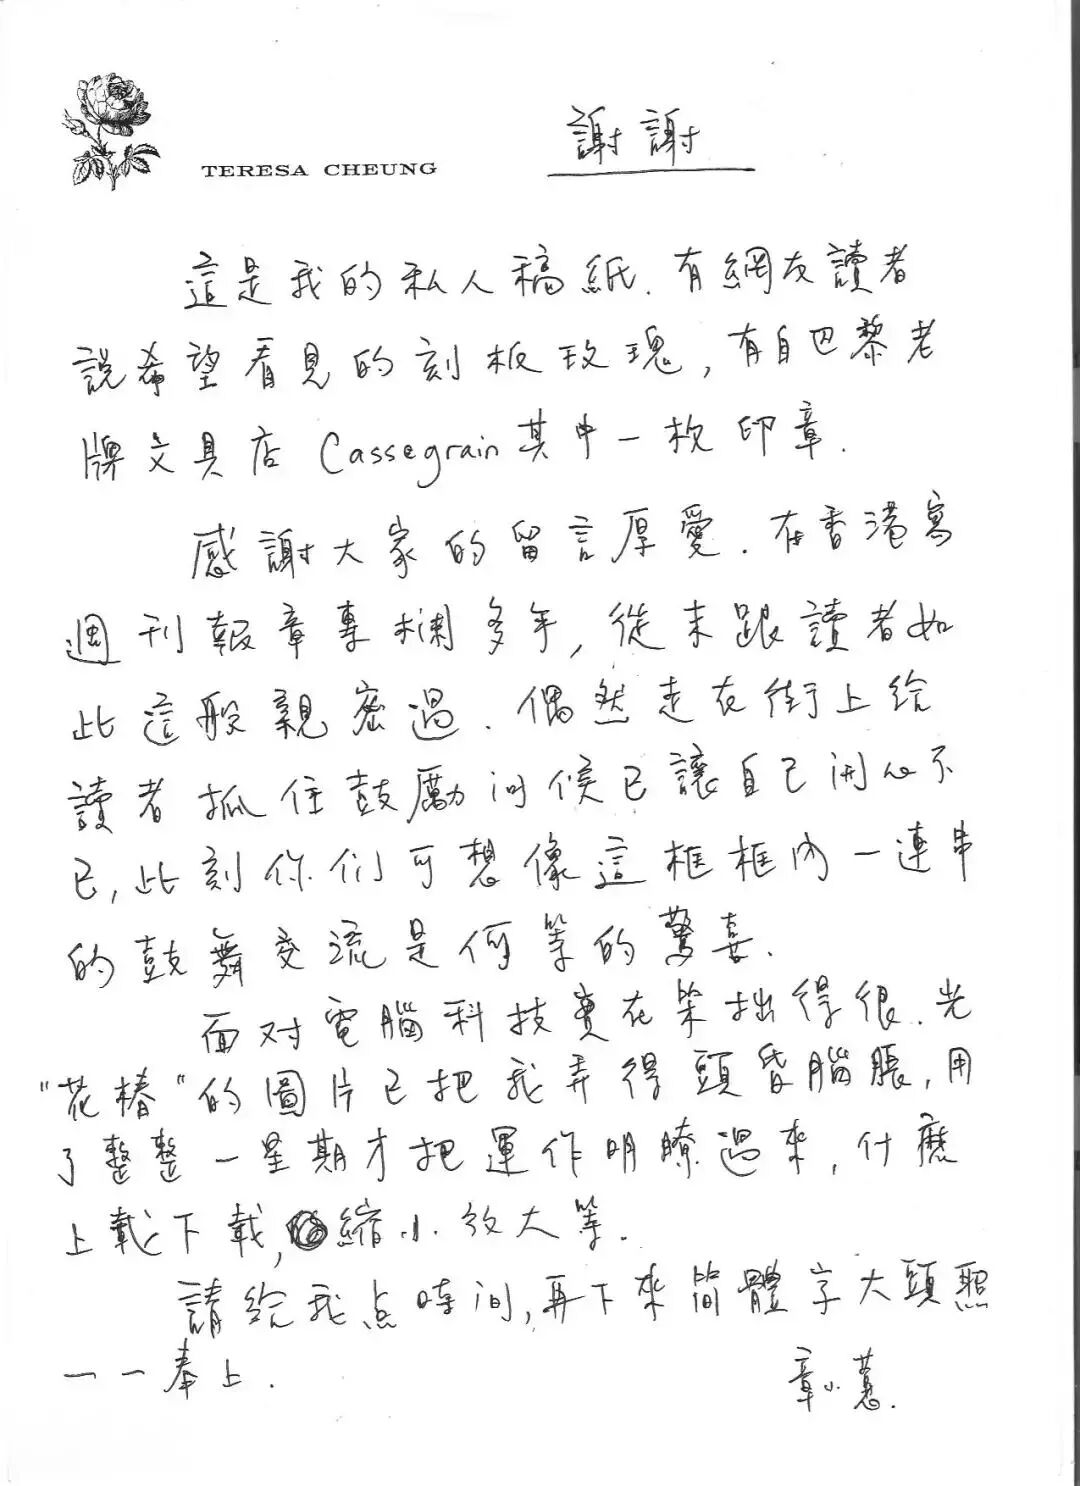 謝謝
TERESA CHEUNG
這是我的私人稿紙.有網友讀者
說希望看見的刻板玫瑰,有自巴黎老
牌文具店 Cassegrain其中一枚印章.
感謝大家的留言厚愛.在香港寫
週刊報章專欄多年,從未跟讀者如
此這般親密過.偶然走在街上给
讀者抓住鼓勵问候已讓自己開心不
已,此刻你们可想像這框框內一連串
的鼓舞交流是何等的驚喜.
面对電腦科技實在笨拙得很.光
"花樁"的圖片已把我弄得頭昏腦脹,用
了整整一星期才把運作明瞭過來,什麽
上載下載,縮小.放大等.
請给我点時间,再下來简體字大頭照
一一奉上.
章小蕙.